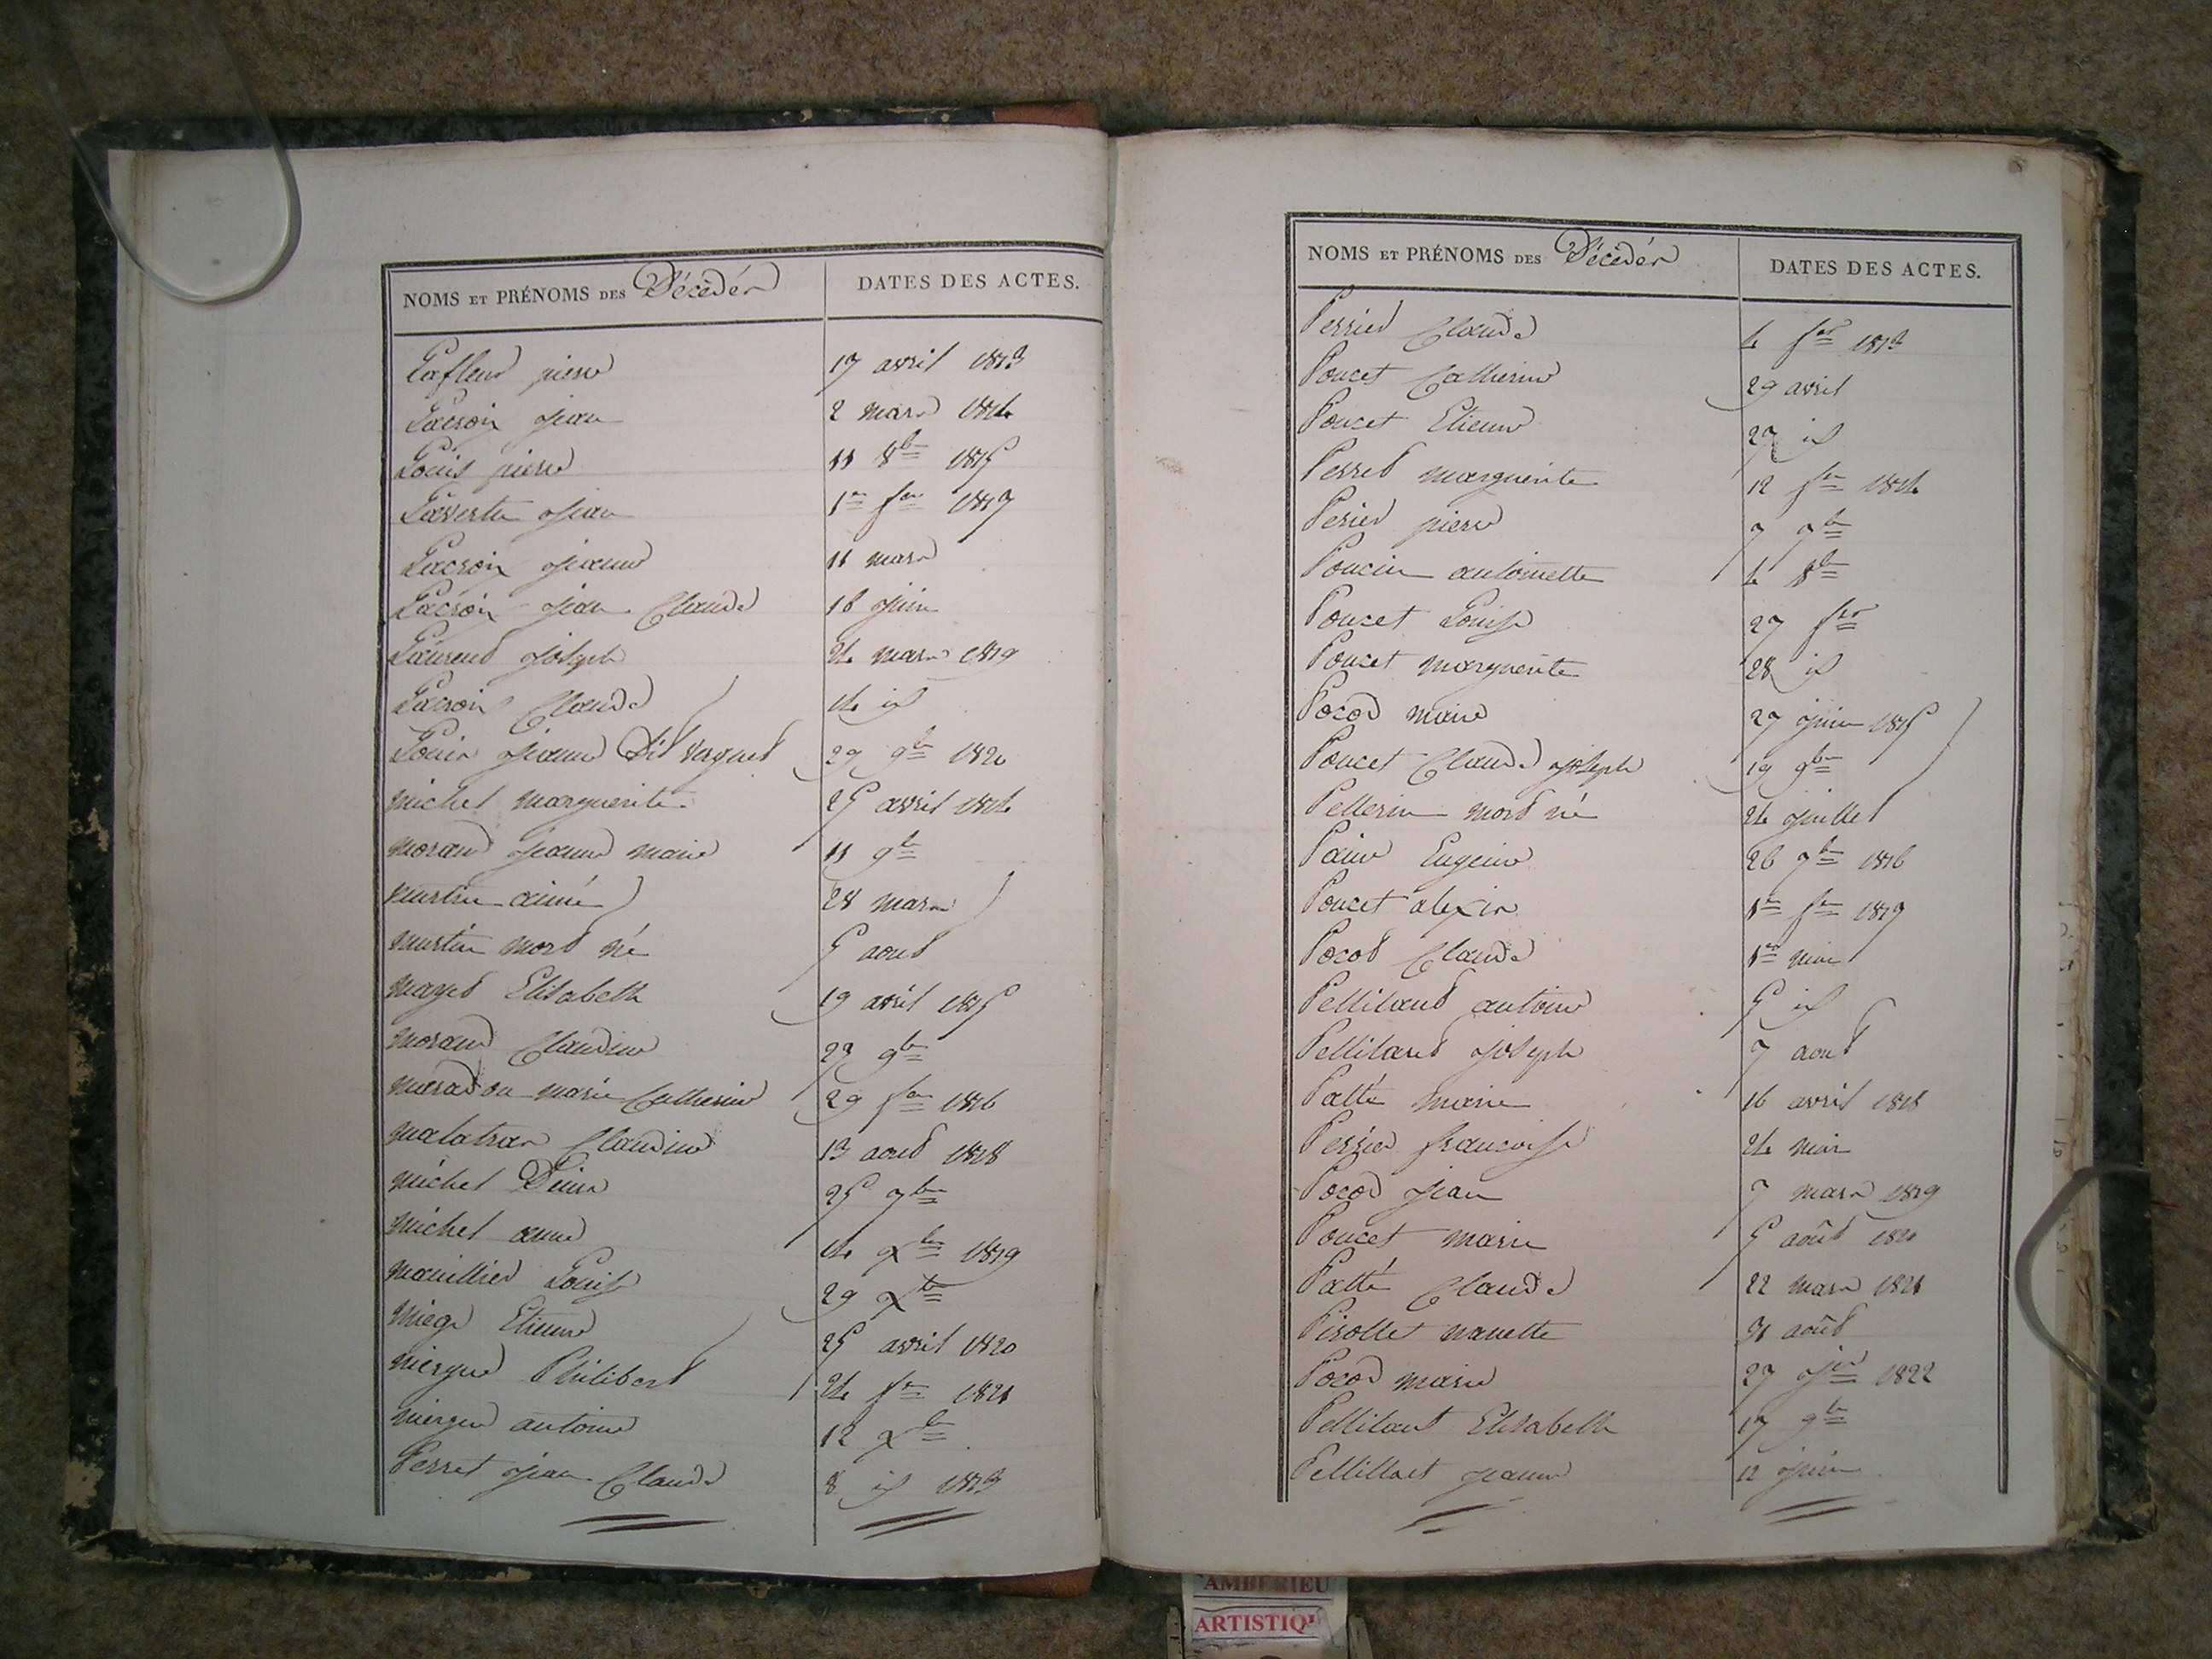 NOMS ET PRÉNOMS DES Décédés DATES DES ACTES.
Lafleur pierre 17 avril 1813
Lacroix jean 2 mars 1814
Louis pierre 11 8bre 1815
jean 1er fer 1817
Lacroix jeanne 11 mars
Lacroix jean Claude 16 juin
Laurend joseph 24 mars 1819
Lacroix Claude 14 id
Louis jeanne dit 29 9bre 1820
michel marguerite 25 avril 1814
morand jeanne marie 11 9bre
martin aimé 28 mars
martin mord né 5 aoud
mayed Elisabeth 19 avril 1815
morand Claudine 27 9bre
marie Catherine 29 fer 1816
malatras Claudine 13 aoud 1818
michel Denis 25 7bre
michel anne 14 xbre 1819
Louise 29 xbre
miege Etienne 25 avril 1820
Philiberd 24 fer 1821
antoine 12 xbre
Perret jean Claude 8 id 1813
NOMS ET PRÉNOMS DES Décédés DATES DES ACTES.
Perrier Claude 4 fer 1813
Poncet Catherine 29 avril
Poncet Etienne 27 id
Perred marguerite 12 fer 1814
Perier pierre 7 9bre
Poncin antoinette 4 8bre
Poncet Louise 27 fer
Poncet marguerite 28 id
Pocod marie 27 juin 1815
Poncet Claude joseph 19 9bre
Pellerin mord né 24 juillet
Eugenie 26 7bre 1816
Poncet alexis 1er fer 1817
Pocod Claude 1er mai
Pellitand antoine 5 id
Pellitand joseph 7 aoud
Patté marie 16 avril 1818
Perrier francoise 24 mai
Pocod jean 7 mars 1819
Poncet marie 5 août 1820
Patté Claude 22 mars 1821
Pirollet nanette 31 aoûd
Pocod marie 27 jer 1822
Pellitant Elisabeth 17 9bre
jeanne 12 juin
AMBERIEU
ARTISTIQ